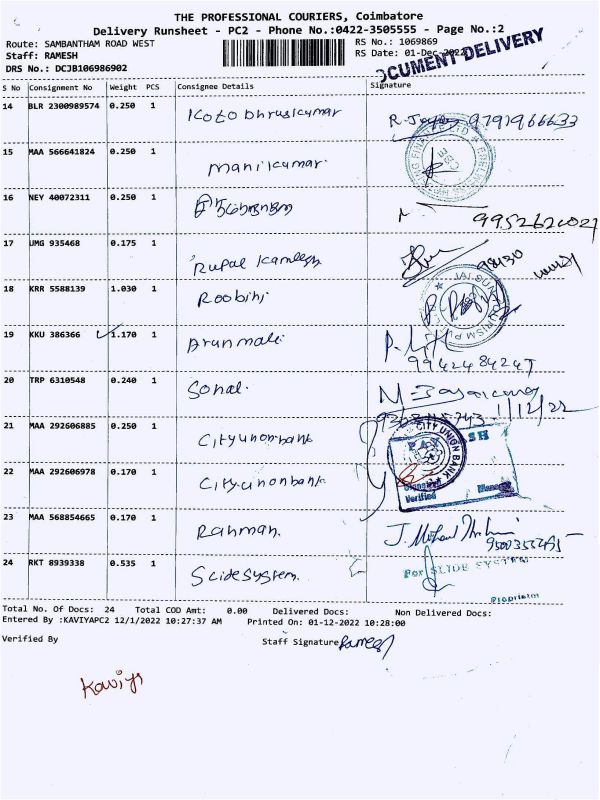 THE PROFESSIONAL COURIERS, Coimbatore
Delivery Runsheet - PC2 - Phone No.:0422-3505555 - Page No.:2
Route: SAMBANTHAM ROAD WEST RS No.: 1069869
Staff: RAMESH RS Date: 01-Dec-2022
DRS No.: DCJB106986902
DOCUMENT DELIVERY
S No Consignment No Weight PCS Consignee Details Signature
14 BLR 2300989574 0.250 1 9791966633
15 MAA 566641824 0.250 1 Manikumar
CBE
16 NEY 40072311 0.250 1
17 UMG 935468 0.175 1 Rupal Kamlesh
18 KRR 5588139 1.030 1 Roobini
19 KKU 386366 1.170 1 Arunmali
20 TRP 6310548 0.240 1 Sonal
1/12/22
21 MAA 292606885 0.250 1 Cityunonbank
CITY UNION BANK
22 MAA 292606978 0.170 1 Cityunonbank
Verified Manager
23 MAA 568854665 0.170 1 Rahman
24 RKT 8939338 0.535 1 Slidesystem
For SLIDE SYSTEMS
Proprietor
Total No. Of Docs: 24 Total COD Amt: 0.00 Delivered Docs: Non Delivered Docs:
Entered By :KAVIYAPC2 12/1/2022 10:27:37 AM Printed On: 01-12-2022 10:28:00
Verified By Staff Signature Ramesh
Kaviya